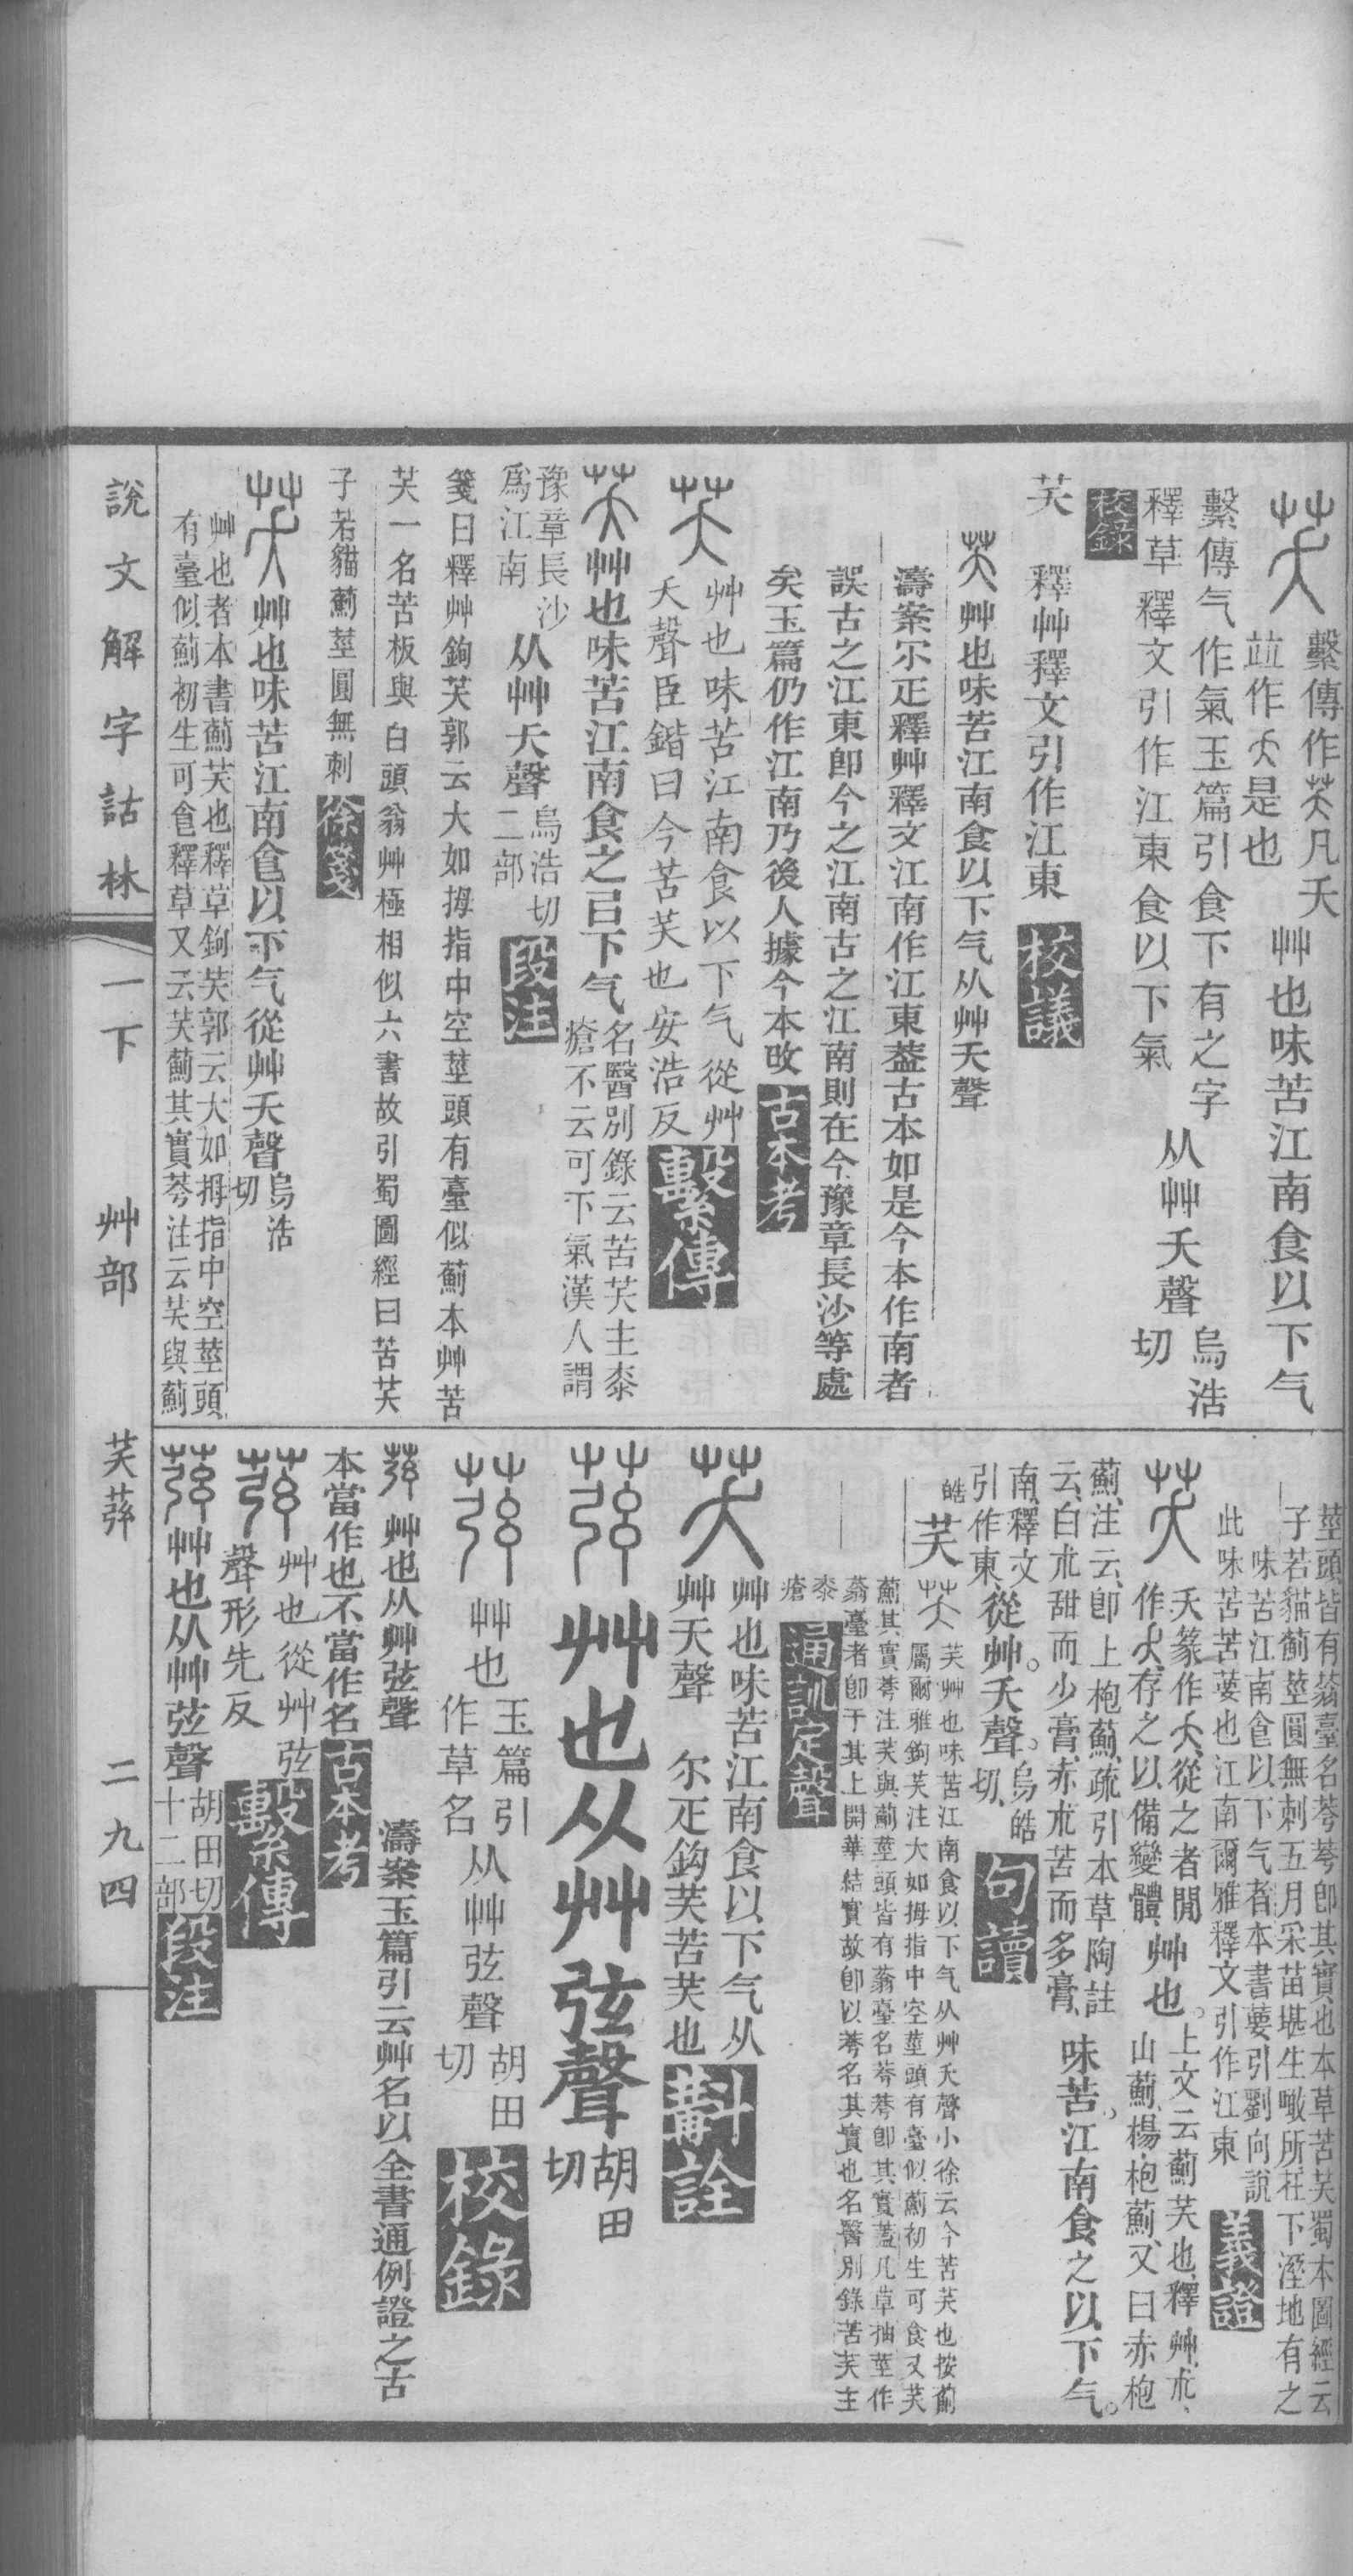 繫傳作芺凡夭
竝作夭是也
艸也味苦江南食以下气
繫傳气作氣玉篇引食下有之字
釋草釋文引作江東食以下氣
从艸夭聲
烏浩
切
校錄
芺
釋艸釋文引作江東
校議
芺艸也味苦江南食以下气从艸夭聲
濤案尒疋釋艸釋文江南作江東葢古本如是今本作南者
誤古之江東卽今之江南古之江南則在今豫章長沙等處
矣玉篇仍作江南乃後人據今本改
古本考
芺
艸也味苦江南食以下气從艸
夭聲臣鍇曰今苦芺也安浩反
繫傳
芺艸也味苦江南食之㠯下气
名醫別錄云苦芺主桼
瘡不云可下氣漢人謂
豫章長沙
爲江南
从艸夭聲
烏浩切
二部
段注
箋曰釋艸鉤芺郭云大如拇指中空莖頭有臺似薊本艸苦
芺一名苦板與白頭翁艸極相似六書故引蜀圖經曰苦芺
子若貓薊莖圓無刺
徐箋
芺艸也味苦江南食以下气從艸夭聲
烏浩
切
艸也者本書薊芺也釋草鉤芺郭云大如拇指中空莖頭
有臺似薊初生可食釋草又云芺薊其實荂注云芺與薊
莖頭皆有蓊臺名荂荂卽其實也本草苦芺蜀本圖經云
子若貓薊莖圓無刺五月采苗堪生噉所在下溼地有之
味苦江南食以下气者本書葽引劉向說
此味苦苦葽也江南爾雅釋文引作江東
義證
芺
夭篆作夭從之者閒
作夭存之以備變體
艸也。
上文云薊芺也釋艸朮、
山薊、楊枹薊、又曰赤枹
薊、注云、卽上枹薊、疏引本草陶註
云、白朮甜而少膏、赤朮苦而多膏、
味苦。江南食之以下气。
南、釋文
引作東
從艸。夭聲。
烏皓
切、
句讀
皓
芺
芺艸也味苦江南食以下气从艸夭聲小徐云今苦芺也按薊
屬爾雅鉤芺注大如拇指中空莖頭有臺似薊初生可食又芺
薊其實荂注芺與薊莖頭皆有蓊臺名荂荂卽其實葢凡草抽莖作
蓊臺者卽于其上開華結實故卽以荂名其實也名醫別錄苦芺主
桼
瘡
通訓定聲
芺
艸也味苦江南食以下气从
艸夭聲　尔疋鈎芺苦芺也
斠詮
艸也从艸弦聲
胡田
切
艸也
玉篇引
作草名
从艸弦聲
胡田
切
校錄
艸也从艸弦聲　濤案玉篇引云艸名以全書通例證之古
本當作也不當作名
古本考
艸也從艸弦
聲形先反
繫傳
艸也从艸弦聲
胡田切
十二部
段注
說文解字詁林
一下
艸部
芺
二九四